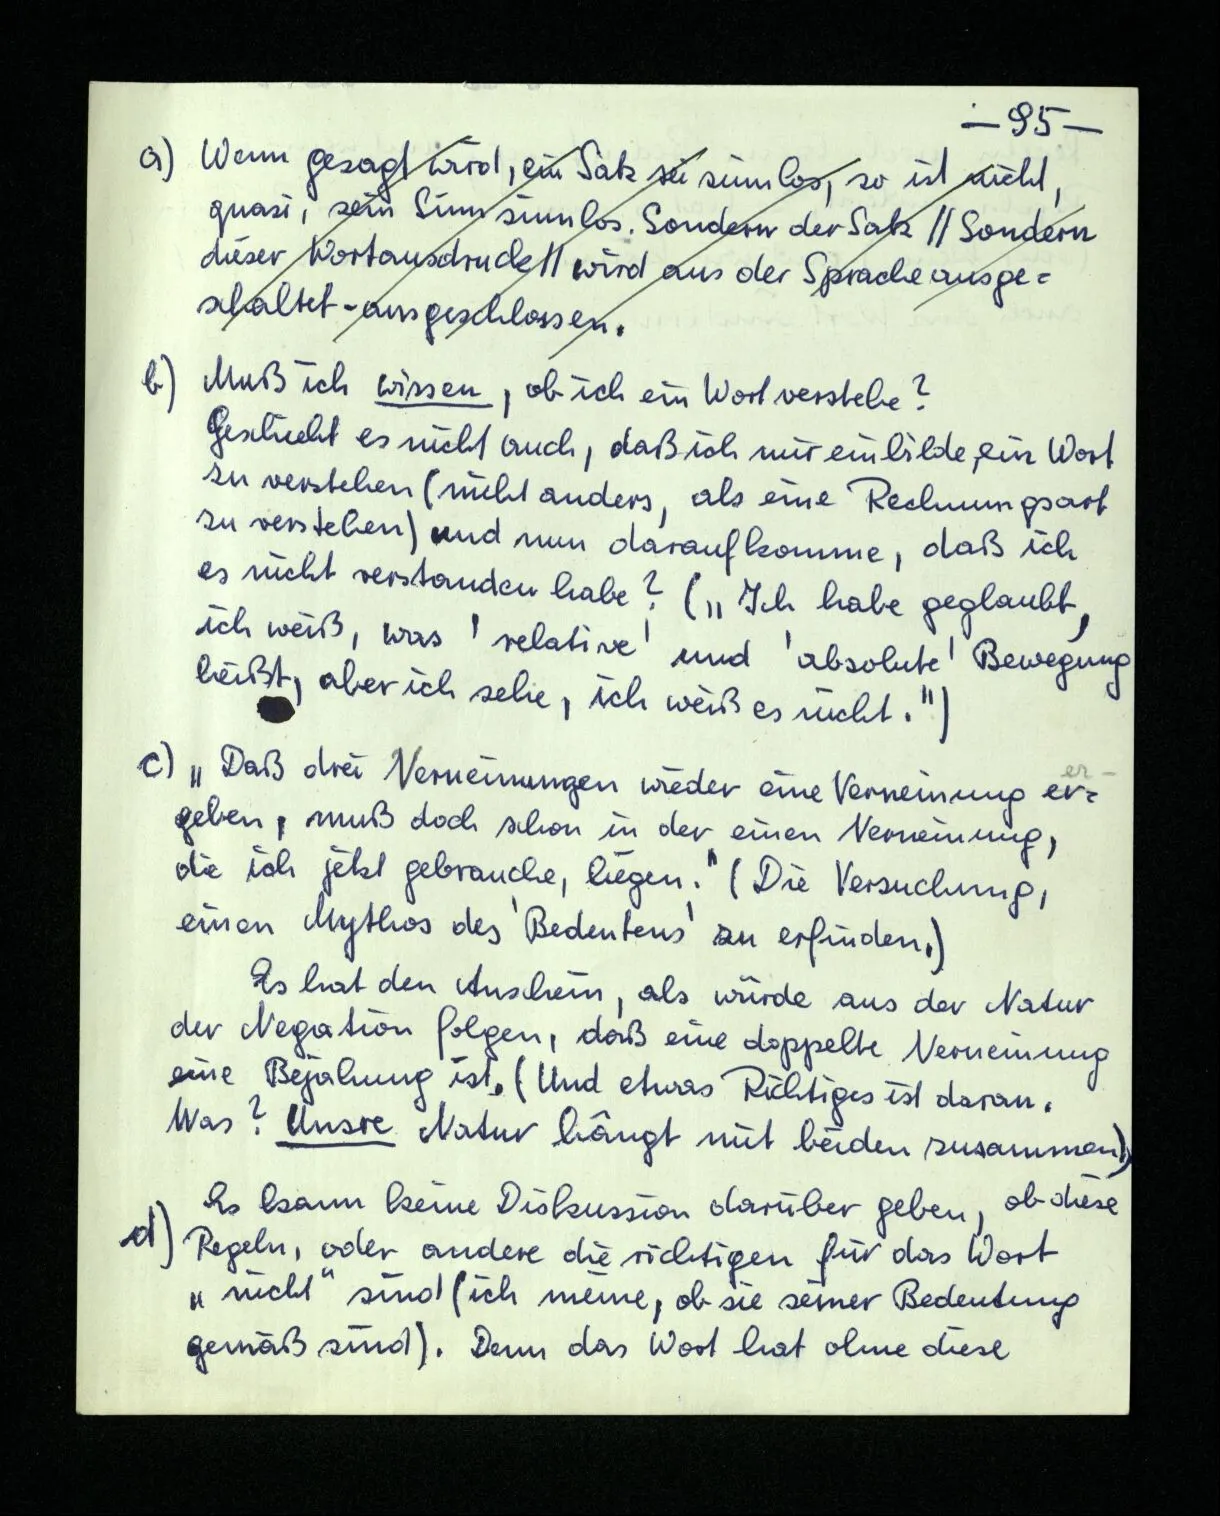 — 95 —
a) Wenn gesagt wird, ein Satz sei sinnlos, so ist nicht,
quasi, sein Sinn sinnlos. Sondern der Satz // Sondern
dieser Wortausdruck // wird aus der Sprache ausge=
schaltet - ausgeschlossen.
b) Muß ich wissen, ob ich ein Wort verstehe?
Geschieht es nicht auch, daß ich mir einbilde, ein Wort
zu verstehen (nicht anders, als eine Rechnungsart
zu verstehen) und nun darauf komme, daß ich
es nicht verstanden habe? („Ich habe geglaubt,
ich weiß, was 'relative' und 'absolute' Bewegung
heißt, aber ich sehe, ich weiß es nicht.")
er -
c) „Daß drei Verneinungen wieder eine Verneinung er=
geben, muß doch schon in der einen Verneinung,
die ich jetzt gebrauche, liegen." (Die Versuchung,
einen Mythos des 'Bedeutens' zu erfinden.)
Es hat den Anschein, als würde aus der Natur
der Negation folgen, daß eine doppelte Verneinung
eine Bejahung ist. (Und etwas Richtiges ist daran.
Was? Unsre Natur hängt mit beiden zusammen).
Es kann keine Diskussion darüber geben, ob diese
d) Regeln, oder andere die richtigen für das Wort
„nicht" sind (ich meine, ob sie seiner Bedeutung
gemäß sind). Denn das Wort hat ohne diese